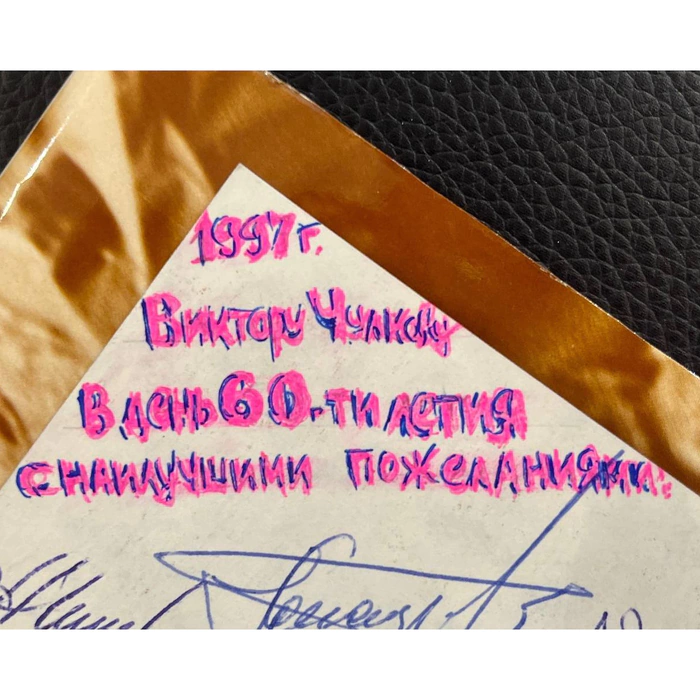 1997 г.
Виктору Чулкову
В день 60.-ти летия
с наилучшими пожеланиями!